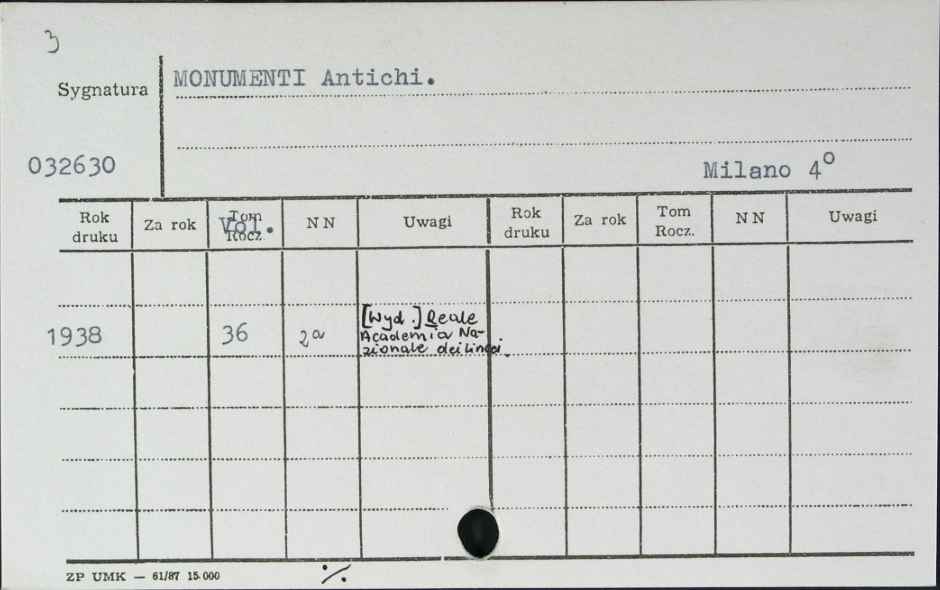 3
Sygnatura
MONUMENTI Antichi.
032630
Milano 4°
Rok druku
Za rok
Tom Rocz.
Vol.
NN
Uwagi
Rok druku
Za rok
Tom Rocz.
NN
Uwagi
1938
36
2a
[Wyd.] Reale
Academia Na-
zionale dei Lincei.
ZP UMK — 61/87 15.000
·/.